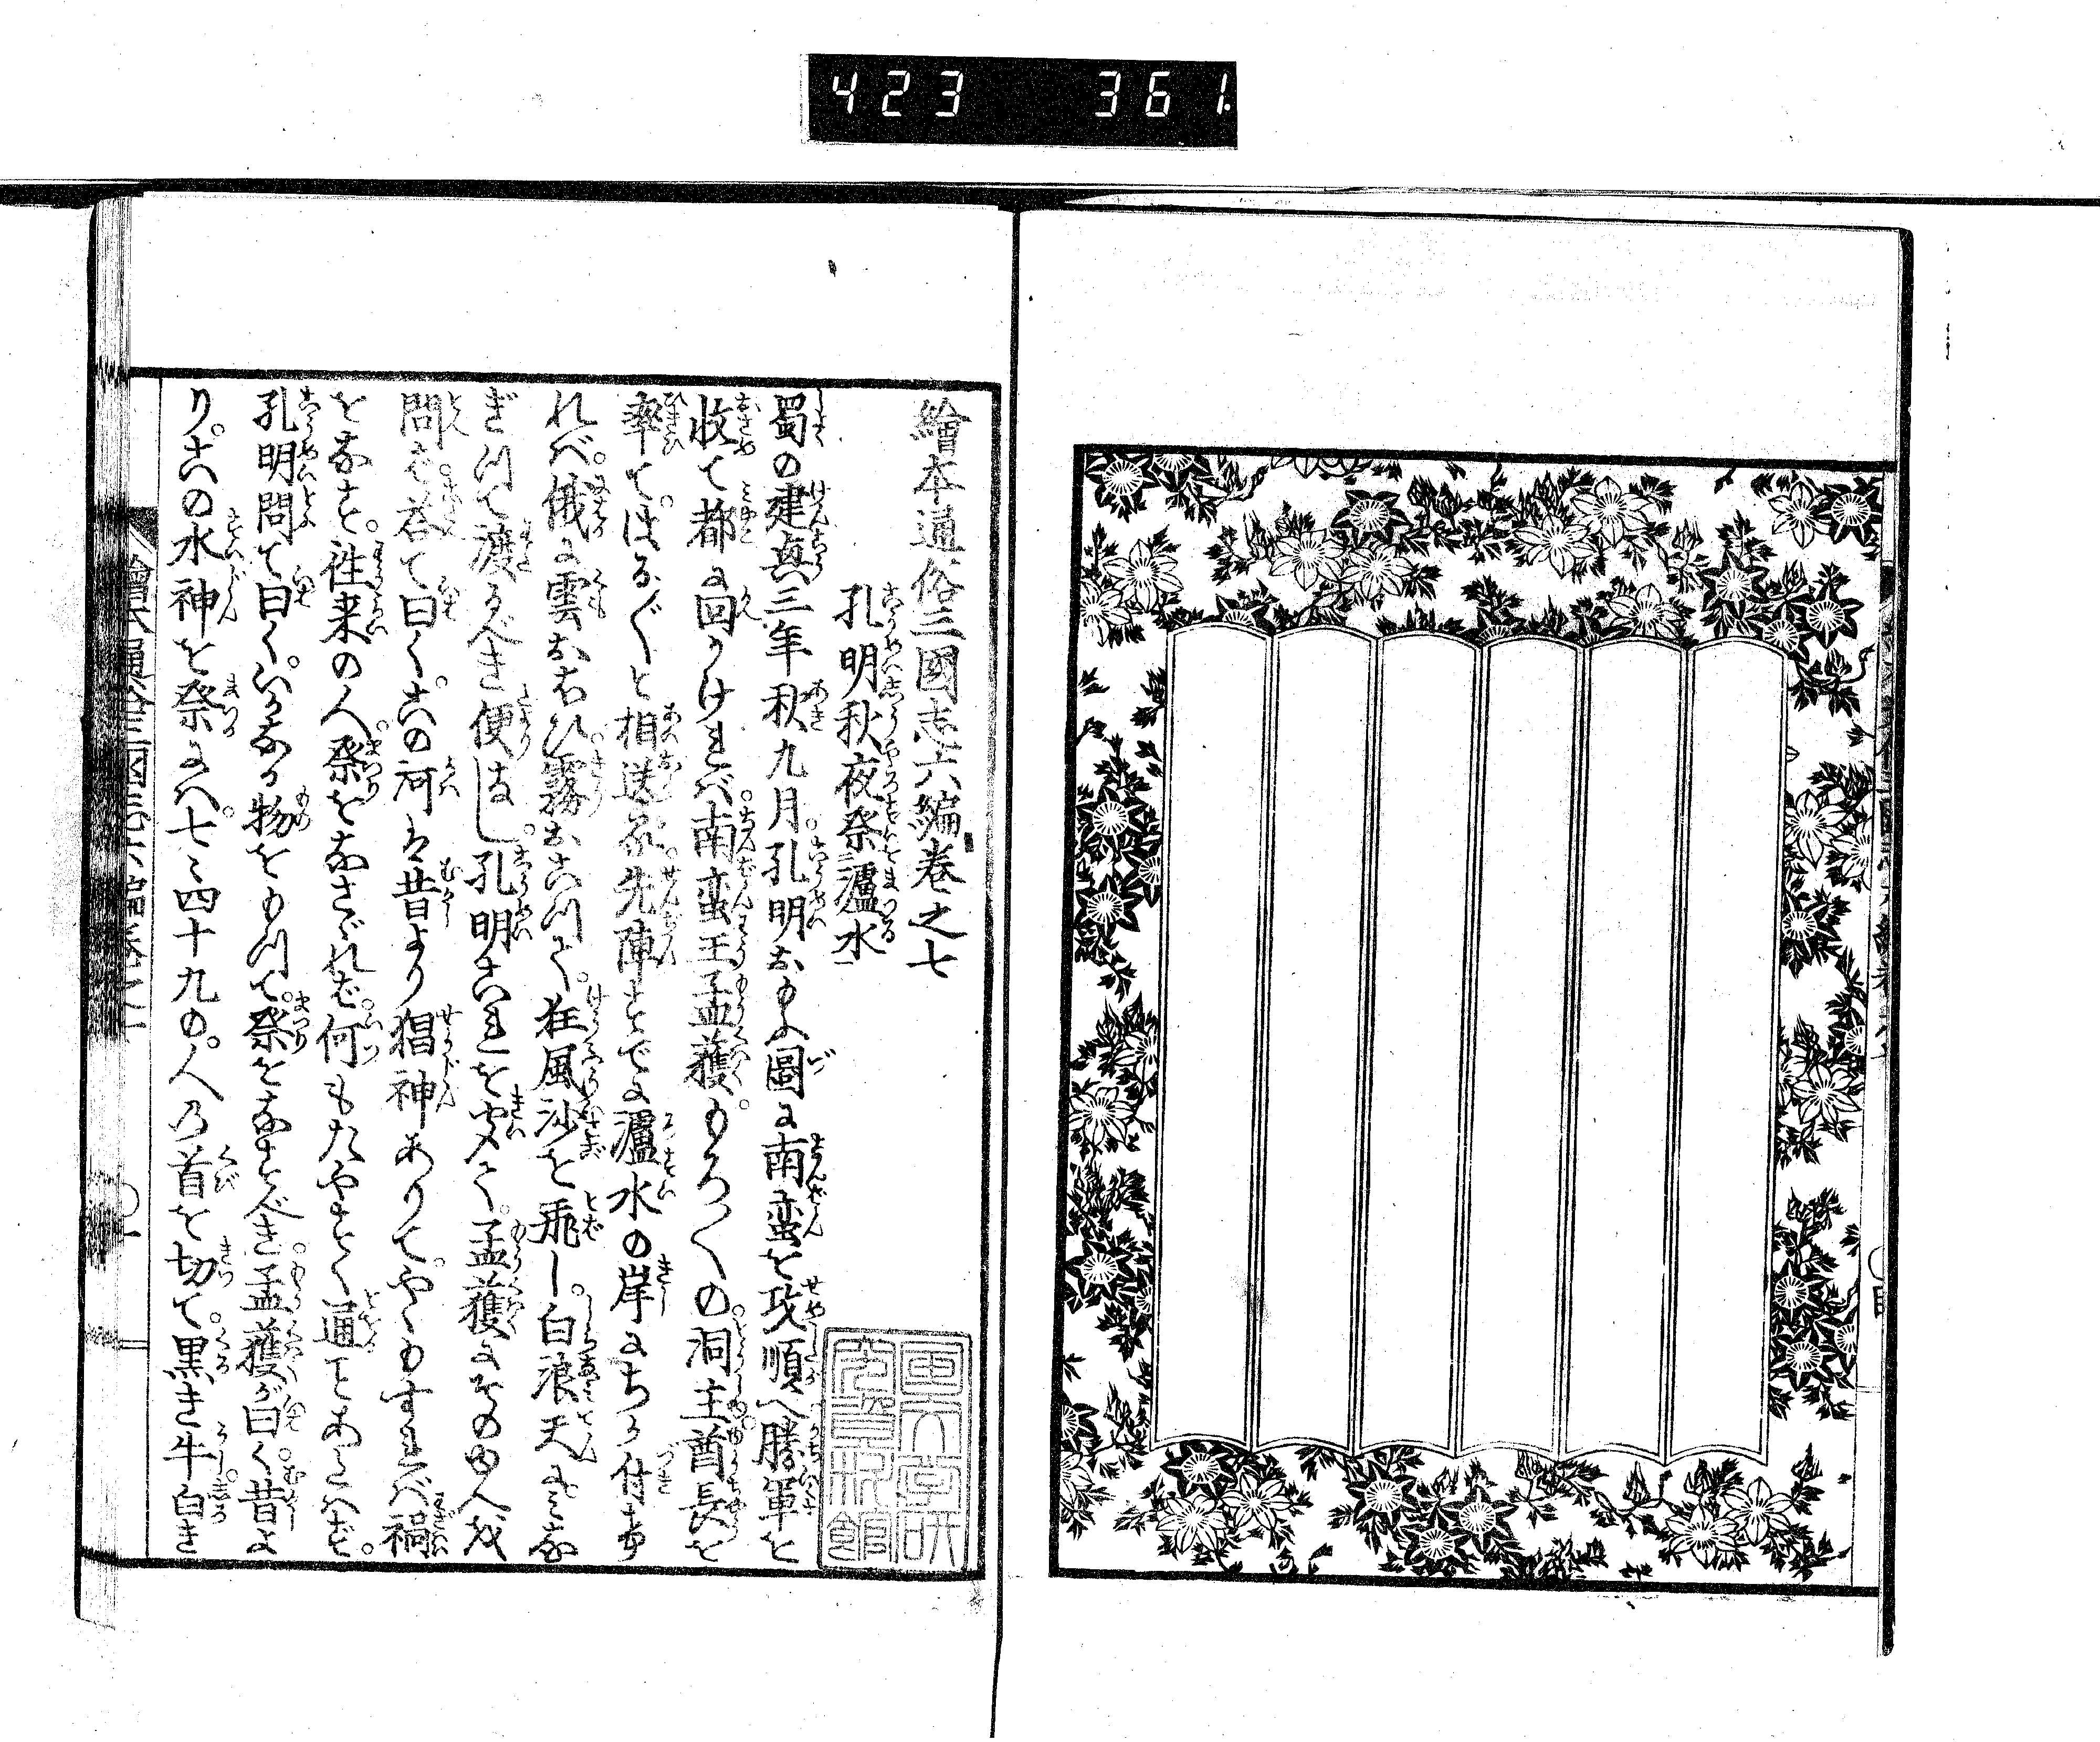 423 361
繪本通俗三國志六編卷之七
孔明秋夜祭瀘水
蜀の建興三年秋九月。孔明おもふ圖に南蛮を攻順へ勝軍を
收て都に回りけれバ。南蛮王孟獲。もろ〳〵の洞主酋長を
率て。はる〴〵と相送る。先陣すでに瀘水の岸にちか付け
れバ。俄に雲おほひ霧おこつて。狂風沙を飛し。白浪天にみな
ぎつて渡るべき便はなし。孔明これを聞て。孟獲にその由人を
問ば。答て曰く。この河は昔より猖神ありて。やゝもすれバ禍
をなす。往来の人。祭をなさゞれば。何もたやすく通ことあたはず。
孔明問て曰く。いかなる物をもつて。祭をなすべき。孟獲が曰く。昔よ
り。この水神を祭るにハ。七々四十九の。人の首を切て。黒き牛白き